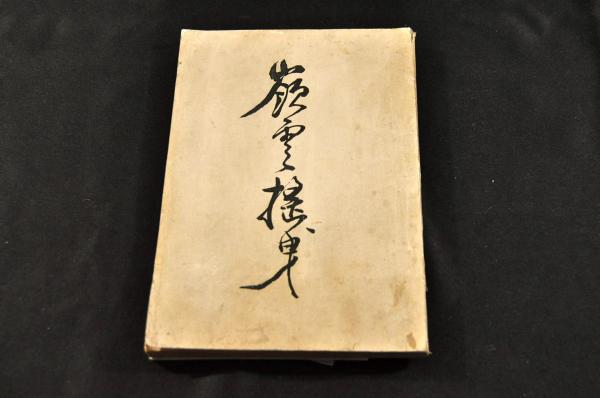 嶺雲揺曳